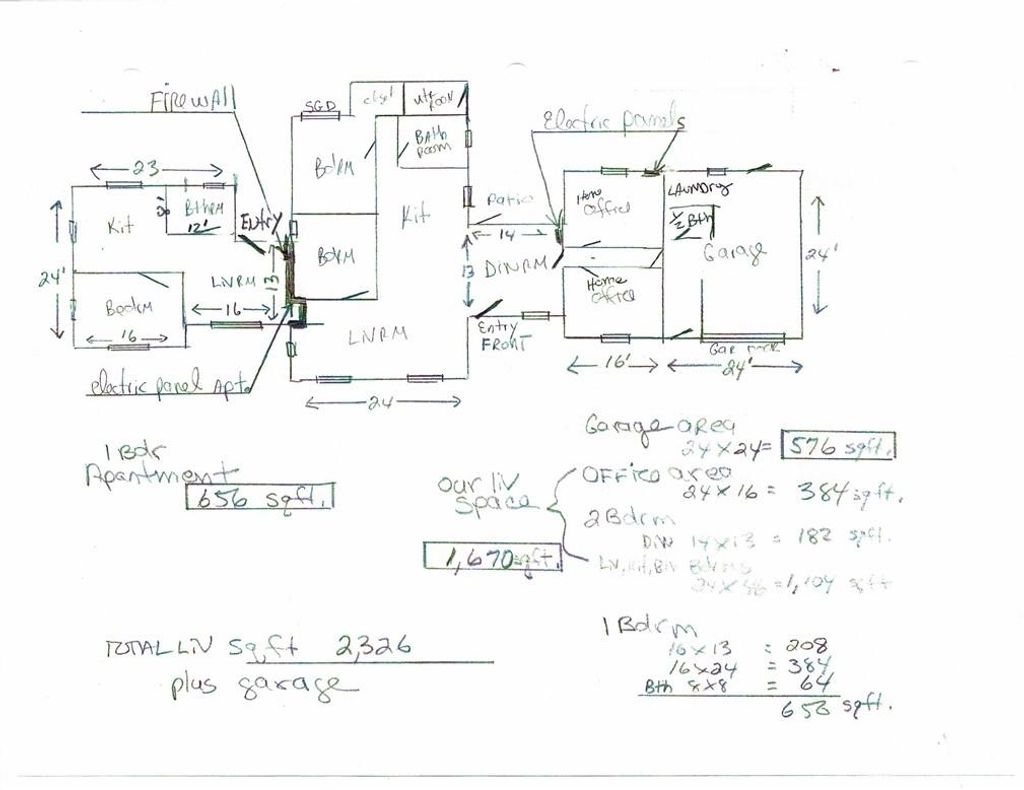 FIREWALL
SGD
closet
util room
Electric panels
BATH room
BdRM
23
LAUNDRY
Home Office
Patio
Kit
8'
BthRM
12'
Entry
½ Bth
14
Kit
Garage
24'
24'
LIVRM
13
BdRM
13
DINRM
Home Office
BedRM
16
16
LIVRM
Entry FRONT
Gar
electric panel Apt.
16'
24'
24
Garage area
24 x 24 = 576 sqft.
1 Bdr
Apartment
656 sqft.
our liv
space
1,670 sqft.
OFFICE area
24 x 16 = 384 sqft.
2 Bdrm
DIN 14 x 13 = 182 sqft.
24 x 46 = 1,104 sqft
1 Bdrm
16 x 13 = 208
16 x 24 = 384
Bth 8x8 = 64
656 sqft.
TOTAL LIV sqft 2,326
plus garage